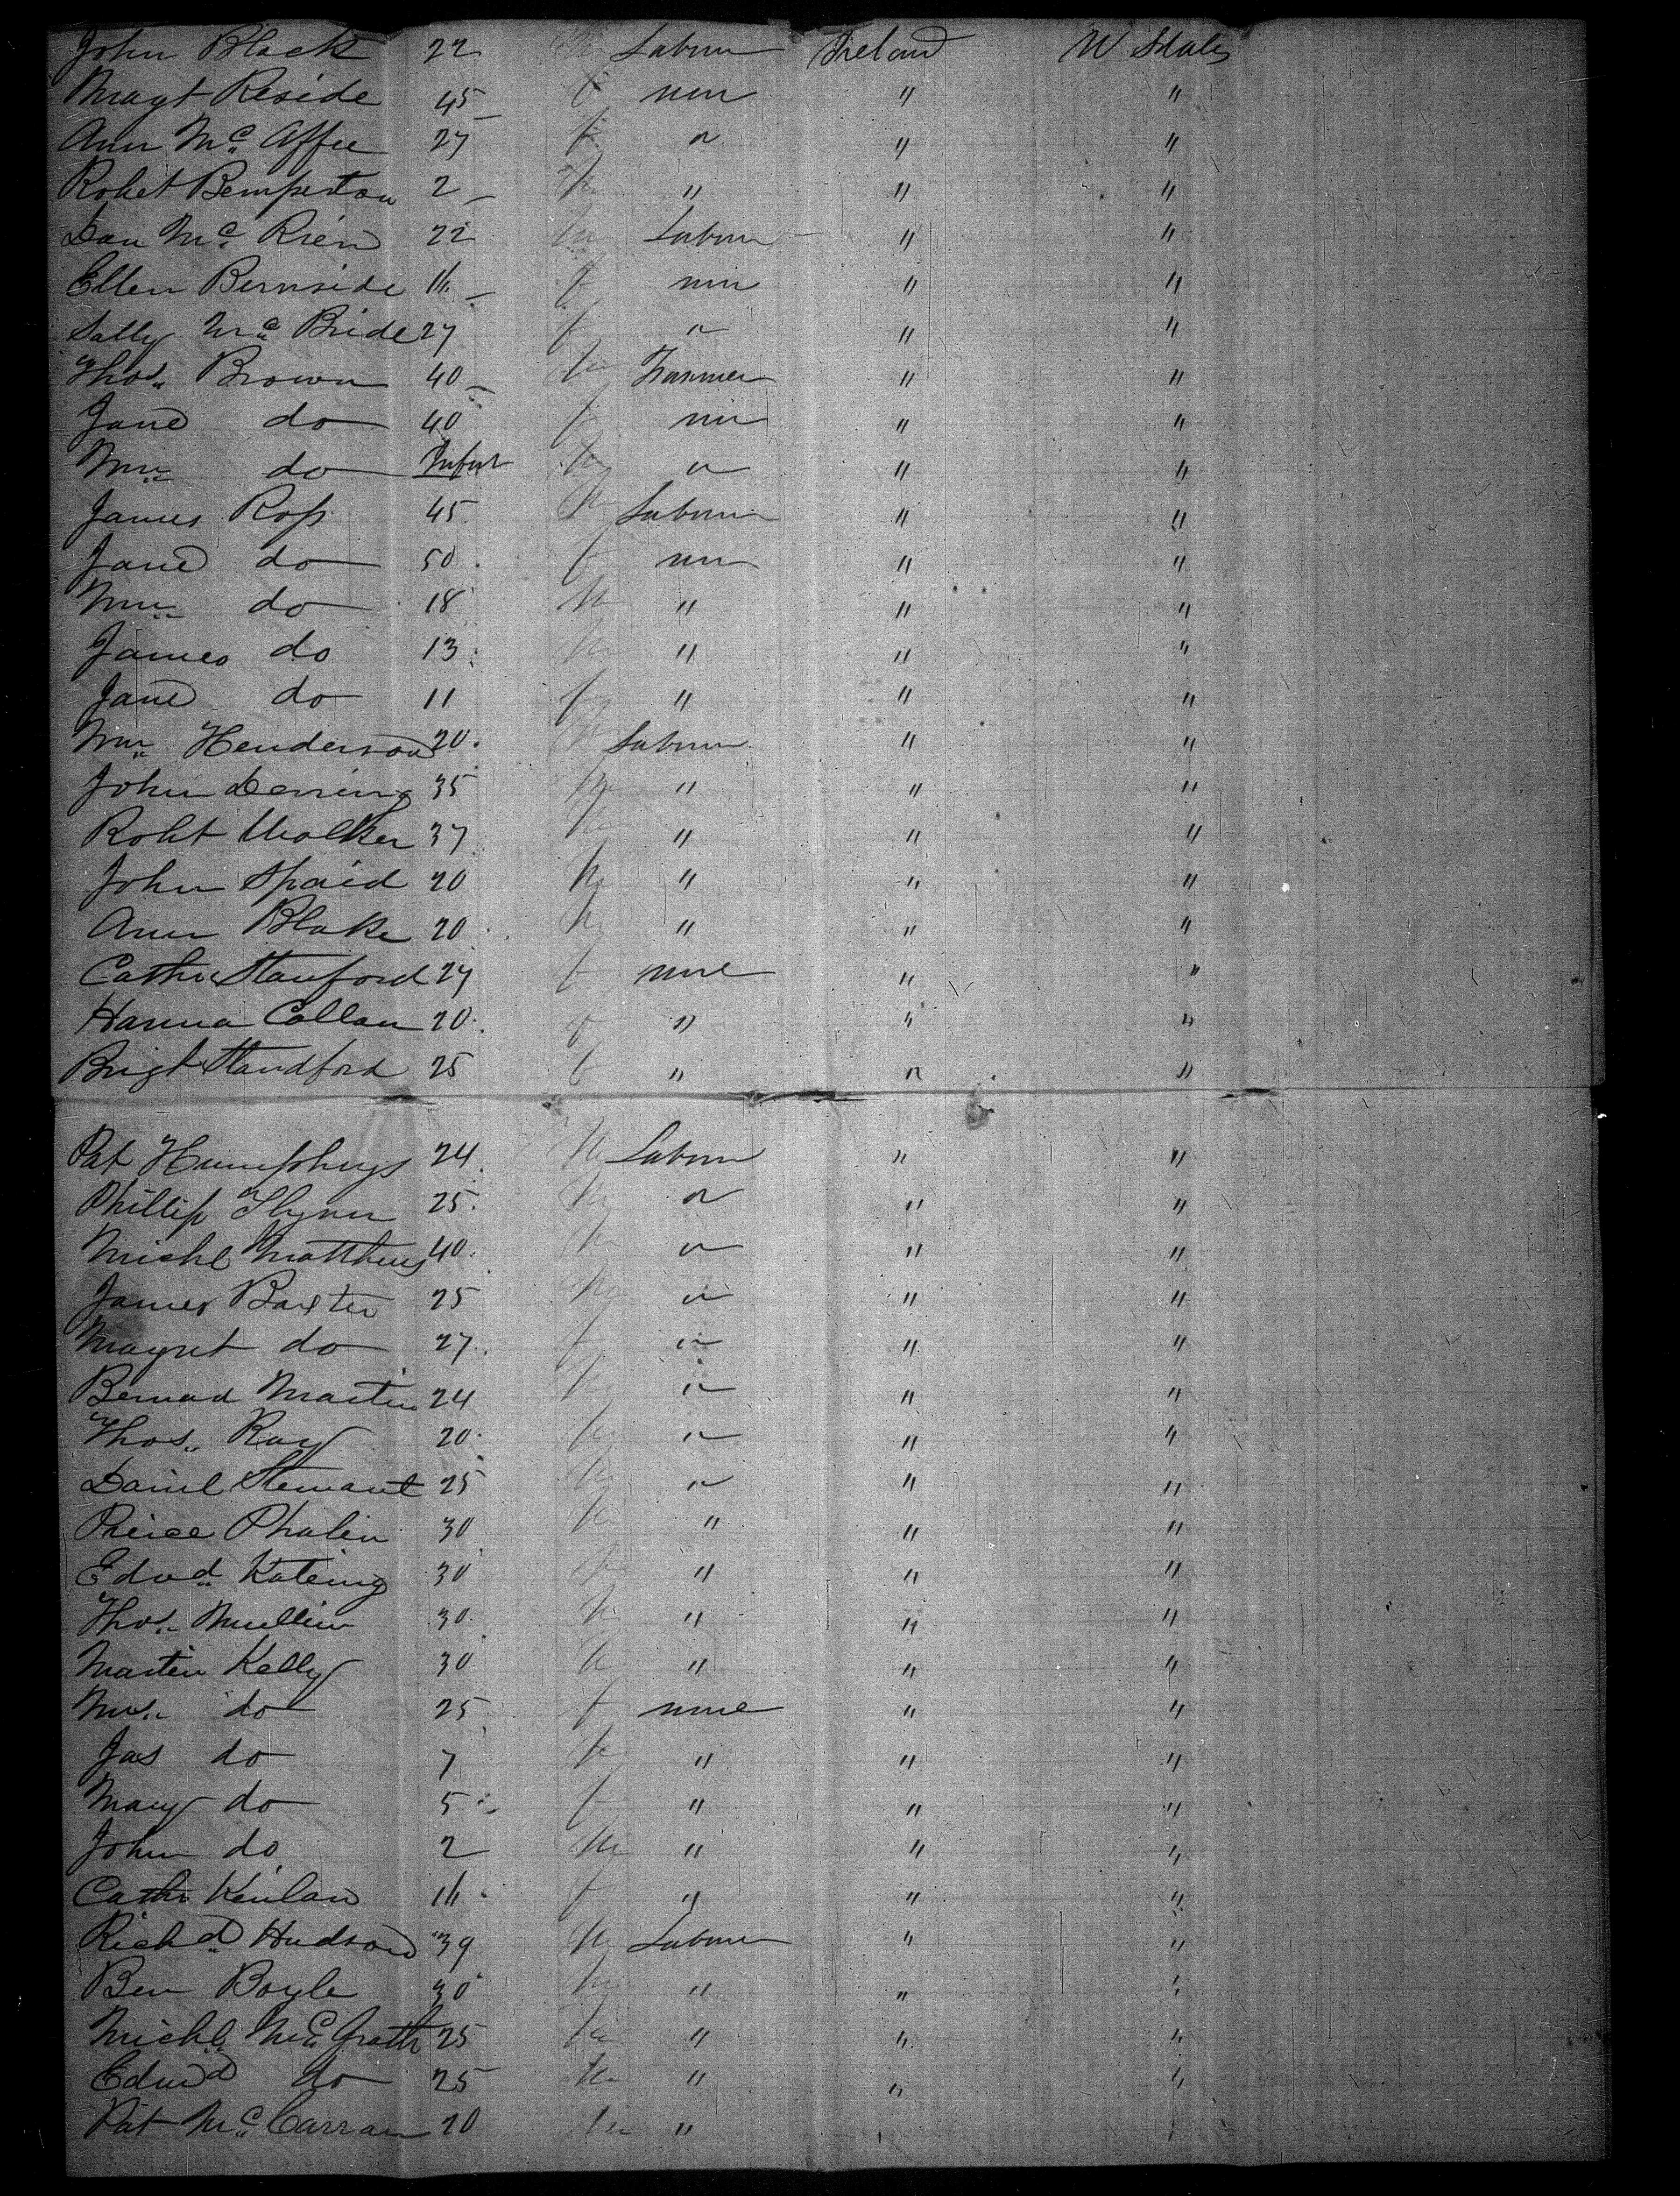 John Black 22 m Labour Ireland U States
Magt Reside 45 f non " "
Ann Mc Affee 27 f " " "
Robet Bemperton 2 m " " "
Dan Mc Rien 22 m Labour " "
Ellen Bernside 16 f non " "
Sally Mc Bride 27 f " " "
Thos Brown 40 m Farmer " "
Jane do 40 f non " "
Wm do Infant m " " "
James Ross 45 m Labour " "
Jane do 50 f non " "
Wm do 18 m " " "
James do 13 m " " "
Jane do 11 f " " "
Wm Henderson 20 m Labour " "
John Derring 35 m " " "
Robt Walker 37 m " " "
John Spaid 20 m " " "
Ann Blake 20 m " " "
Cathe Stanford 27 f none " "
Hanna Collan 20 f " " "
Brigt Standford 25 f " " "
Pat Humphrys 24 m Labour " "
Phillip Flynn 25 m " " "
Michl Matthews 40 m " " "
James Baxter 25 m " " "
Magret do 27 f " " "
Bernad Martin 24 m " " "
Thos Ray 20 m " " "
Daniel Stewart 25 m " " "
Peirce Phalin 30 m " " "
Edwd Kateing 30 " " "
Thos Mullin 30 m " " "
Martin Kelly 30 m " " "
Mrs do 25 f none " "
Jas do 7 m " " "
Mary do 5 f " " "
John do 2 m " " "
Cathe Kenlan 16 f " " "
Richd Hudson 39 m Labour " "
Ben Boyle 30 m " " "
Michl McGrath 25 m " " "
Edwd do 25 m " " "
Pat Mc Carran 20 m " " "